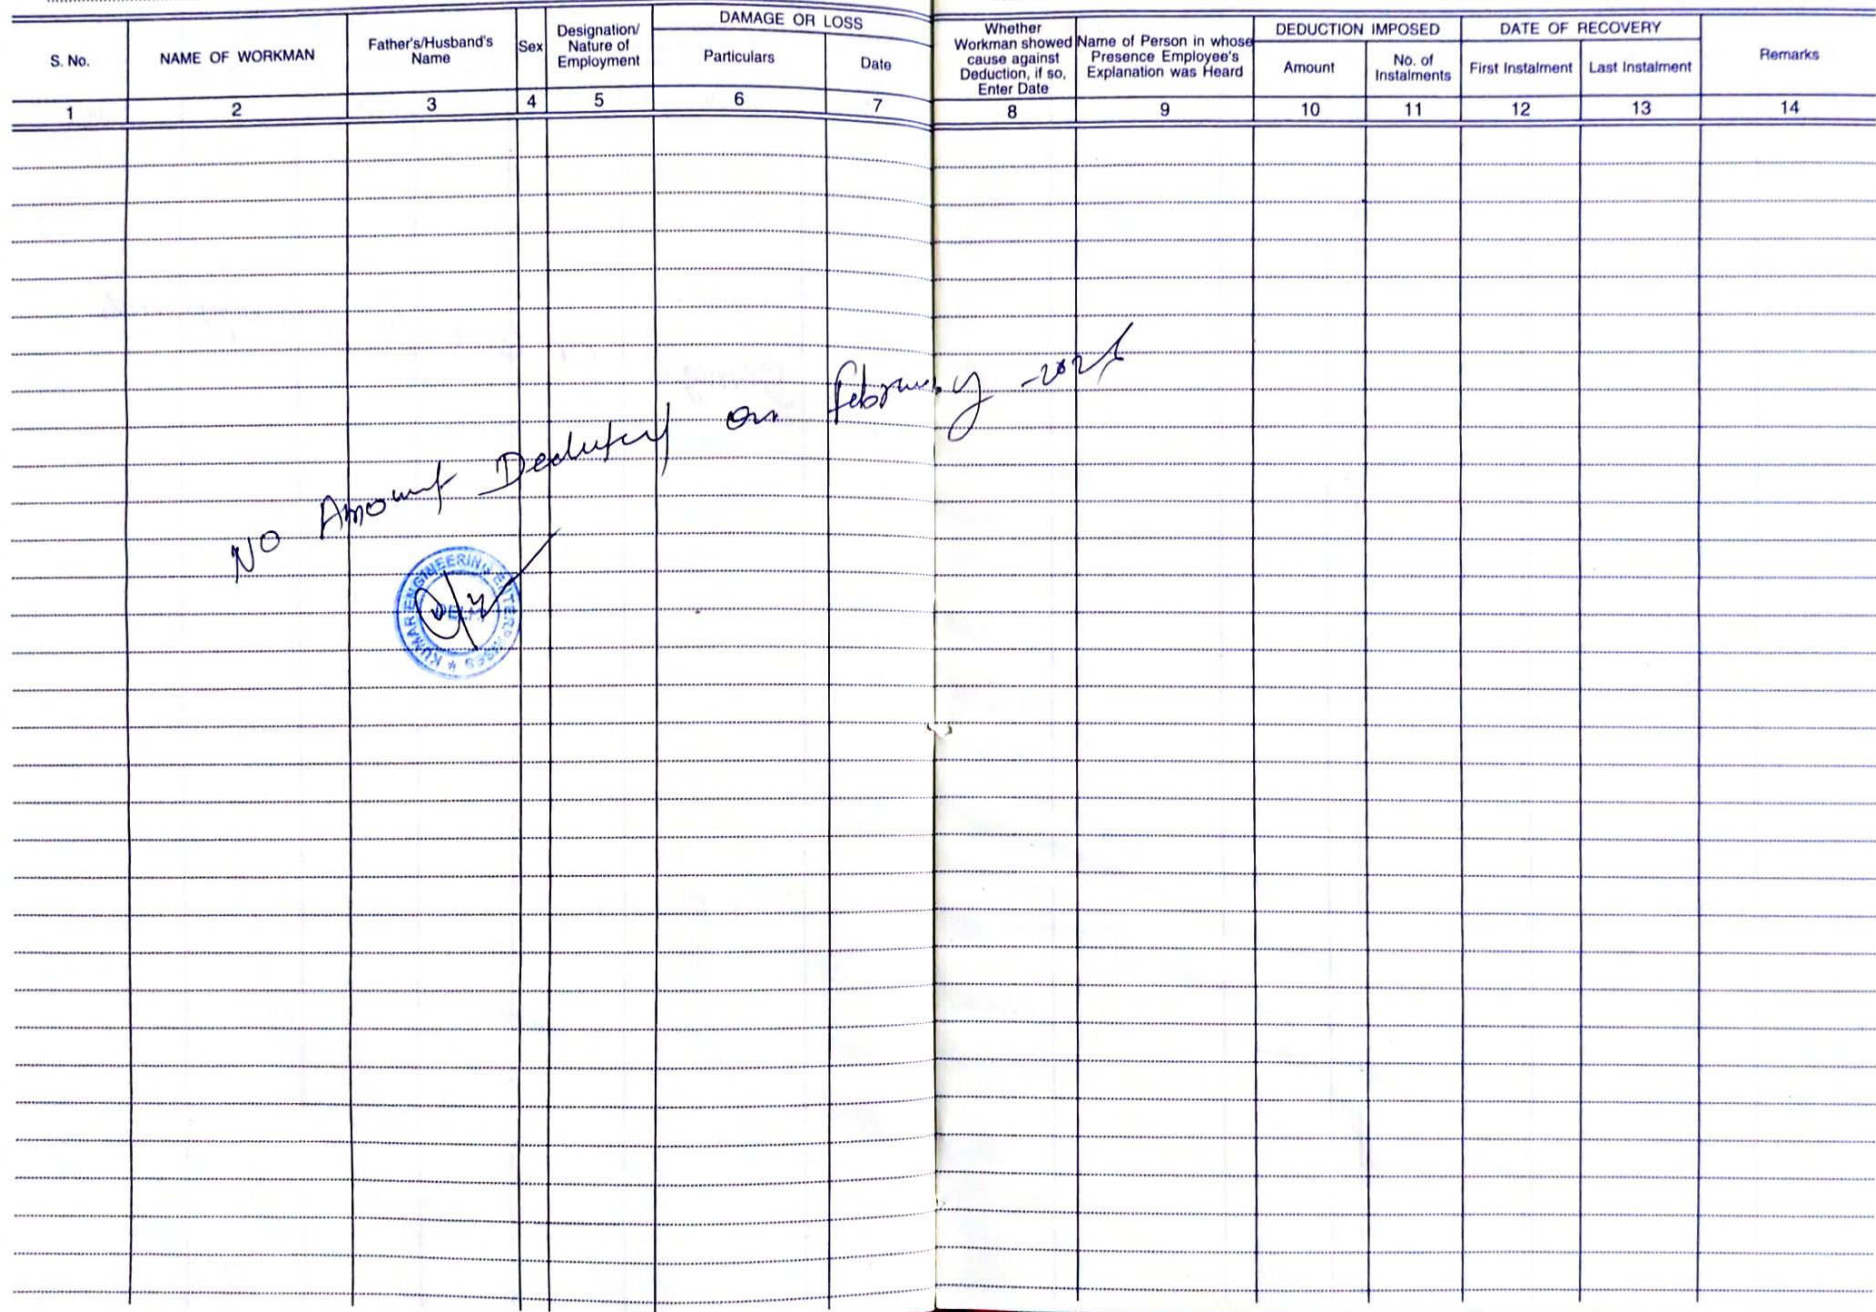 S. No.
NAME OF WORKMAN
Father's/Husband's
Name
Sex
Designation/
Nature of
Employment
DAMAGE OR LOSS
Particulars
Date
Whether
Workman showed
cause against
Deduction, if so,
Enter Date
Name of Person in whose
Presence Employee's
Explanation was Heard
DEDUCTION IMPOSED
Amount
No. of
Instalments
DATE OF RECOVERY
First Instalment
Last Instalment
Remarks
1 2 3 4 5 6 7 8 9 10 11 12 13 14
No Amount on February
KUMAR ENGINEERING ENTERPRISES *